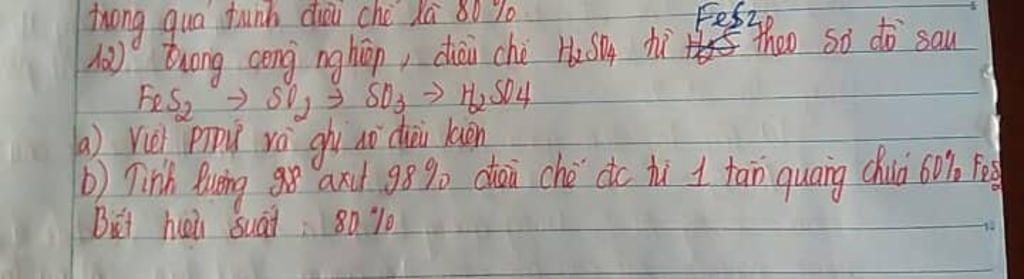 trong quá trình điều chế là 80%
FeS2
12) Trong công nghiệp, điều chế H2SO4 từ H2S theo sơ đồ sau
FeS2 → SO2 → SO3 → H2SO4
a) Viết PTPƯ và ghi rõ điều kiện
b) Tính lượng 98 axit 98% điều chế đc từ 1 tấn quặng chứa 60% FeS2
Biết hiệu suất : 80%